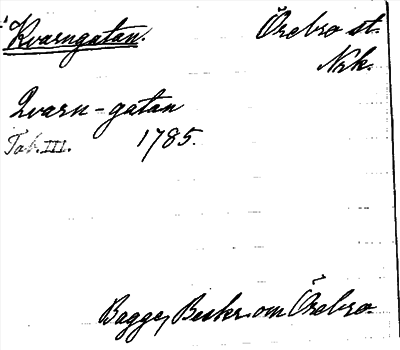 Kvarngatan. Örebro st.
Nrk.
Qvarn-gatan
Tab. III. 1785.
Bagge, Beskr. om Örebro.